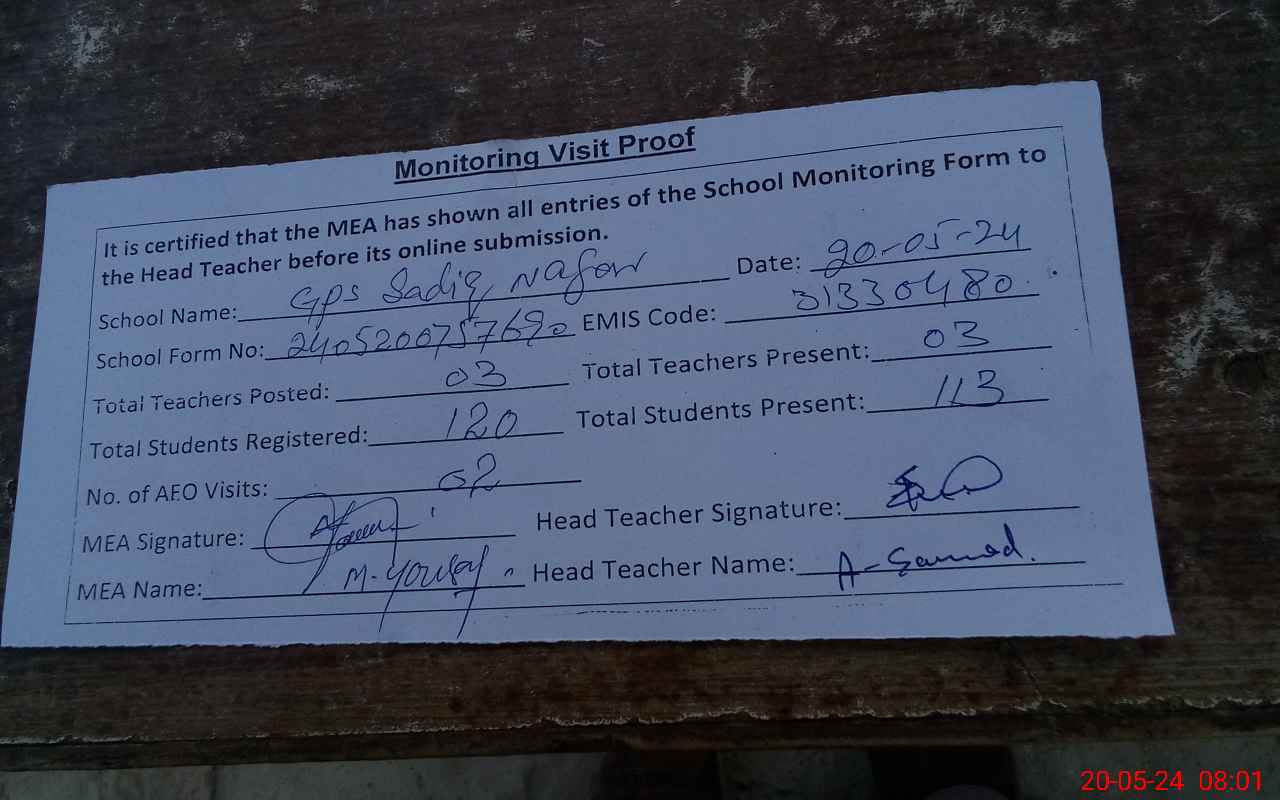 Monitoring Visit Proof
It is certified that the MEA has shown all entries of the School Monitoring Form to
the Head Teacher before its online submission.
School Name: GPS Sadiq Date: 20-05-24
School Form No: 2405200757690 EMIS Code: 31330480
Total Teachers Posted: 03 Total Teachers Present: 03
Total Students Registered: 120 Total Students Present: 113
No. of AEO Visits: 02
MEA Signature: Head Teacher Signature:
MEA Name: M. Yousaf Head Teacher Name: A-Samad.
20-05-24 08:01